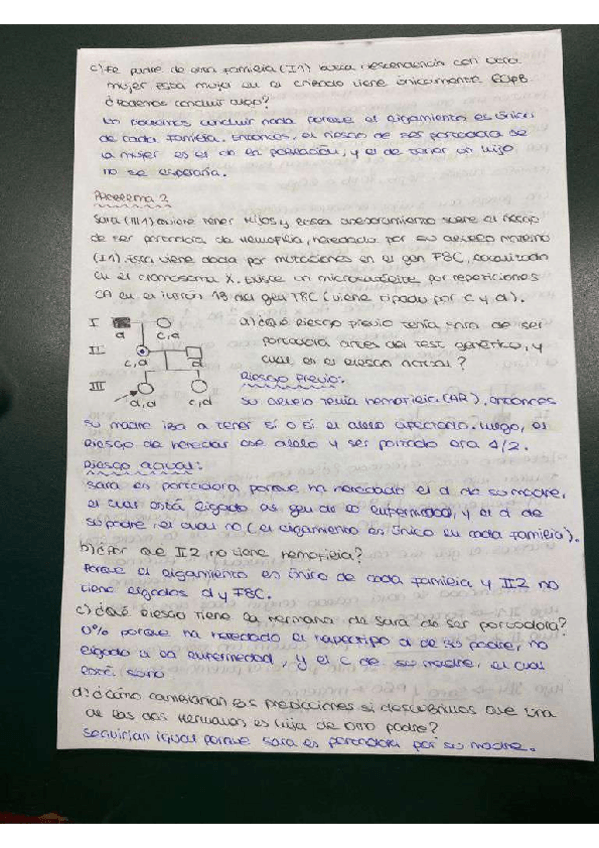 c) Fe parte de otra familia (I1) busca descendencia con otra
mujer. Esta mujer en el criterio tiene únicamente
¿Podemos concluir algo?
No podemos concluir nada porque el ligamiento es único
de cada familia. Entonces, el riesgo de ser portadora de
la mujer es el de la población, y el de tener un hijo
no se esperaría.
Problema 2
Sara (III1) quiere tener hijos y busca asesoramiento sobre el riesgo
de ser portadora de hemofilia, heredado por su abuelo materno
(I1). Esta viene dada por mutaciones en el gen F8C, localizado
en el cromosoma X. Existe un microsatélite por repeticiones
CA en el intrón 13 del gen F8C (viene tipado por c y d).
I
d
c,d
a) ¿Qué riesgo previo tenía Sara de ser
portadora antes del test genético, y
cual es el riesgo actual?
II
c,d
d
III
d,d
c,d
Riesgo Previo:
Su abuelo tenía hemofilia (AR), entonces
su madre iba a tener sí o sí el alelo afectado. Luego, el
riesgo de heredar ese alelo y ser portadora 1/2.
Riesgo actual:
Sara es portadora porque ha heredado el d de su madre,
el cual está ligado al gen de la enfermedad, y el d de
su padre, el cual no (el ligamiento es único en cada familia).
b) ¿Por qué II2 no tiene hemofilia?
Porque el ligamiento es único de cada familia y II2 no
tiene ligados d y F8C.
c) ¿Qué riesgo tiene la hermana de Sara de ser portadora?
0% porque ha heredado el haplotipo d de su padre, no
ligado a la enfermedad, y el c de su madre, el cual
está sano
d) ¿Cómo cambiarían las predicciones si descubrimos que una
de las dos hermanas es hija de otro padre?
Seguirían igual porque Sara es portadora por su madre.